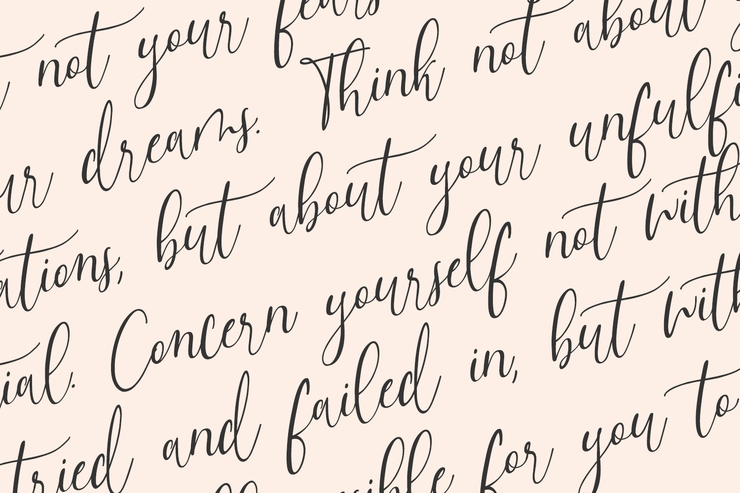 not your fears
ur dreams. Think not about
ations, but about your unfulfi
ial. Concern yourself not with
tried and failed in, but with
ible for you to